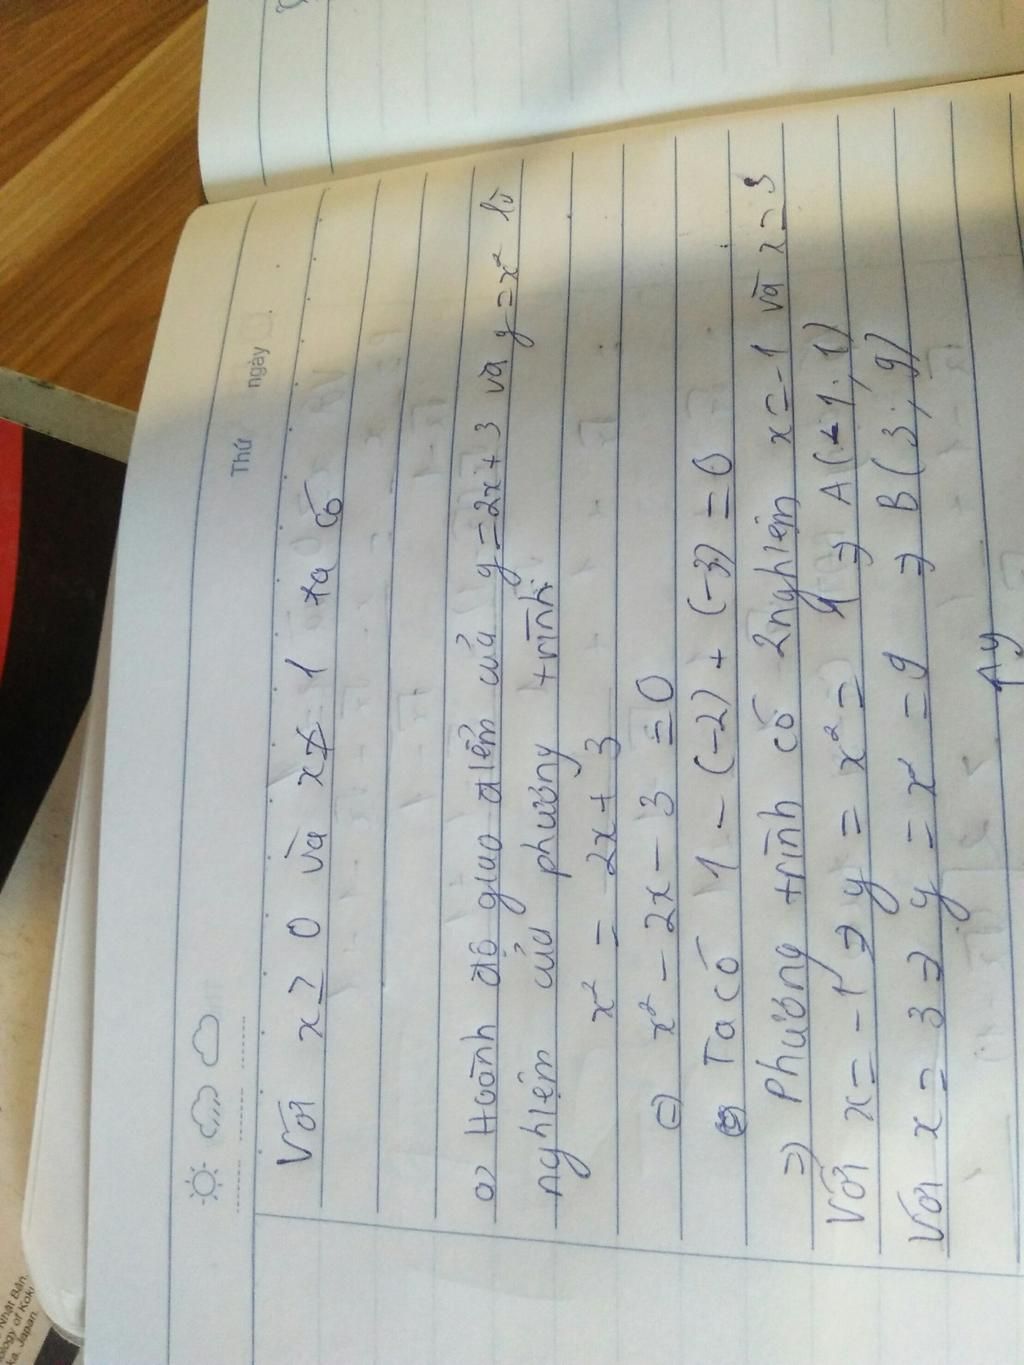 Thứ ngày
Với x ≥ 0 và x ≠ 1 ta có
a) Hoành độ giao điểm của y = 2x + 3 và y = x² là
nghiệm của phương trình
x² = 2x + 3
(=) x² - 2x - 3 = 0
Ta có 1 - (-2) + (-3) = 0
=) Phương trình có 2 nghiệm x = -1 và x = 3
Với x = -1 => y = x² = 1 => A(-1; 1)
Với x = 3 => y = x² = 9 => B(3; 9)
↑y
Nhật Bản.
ology of Koku
ka, Japan.